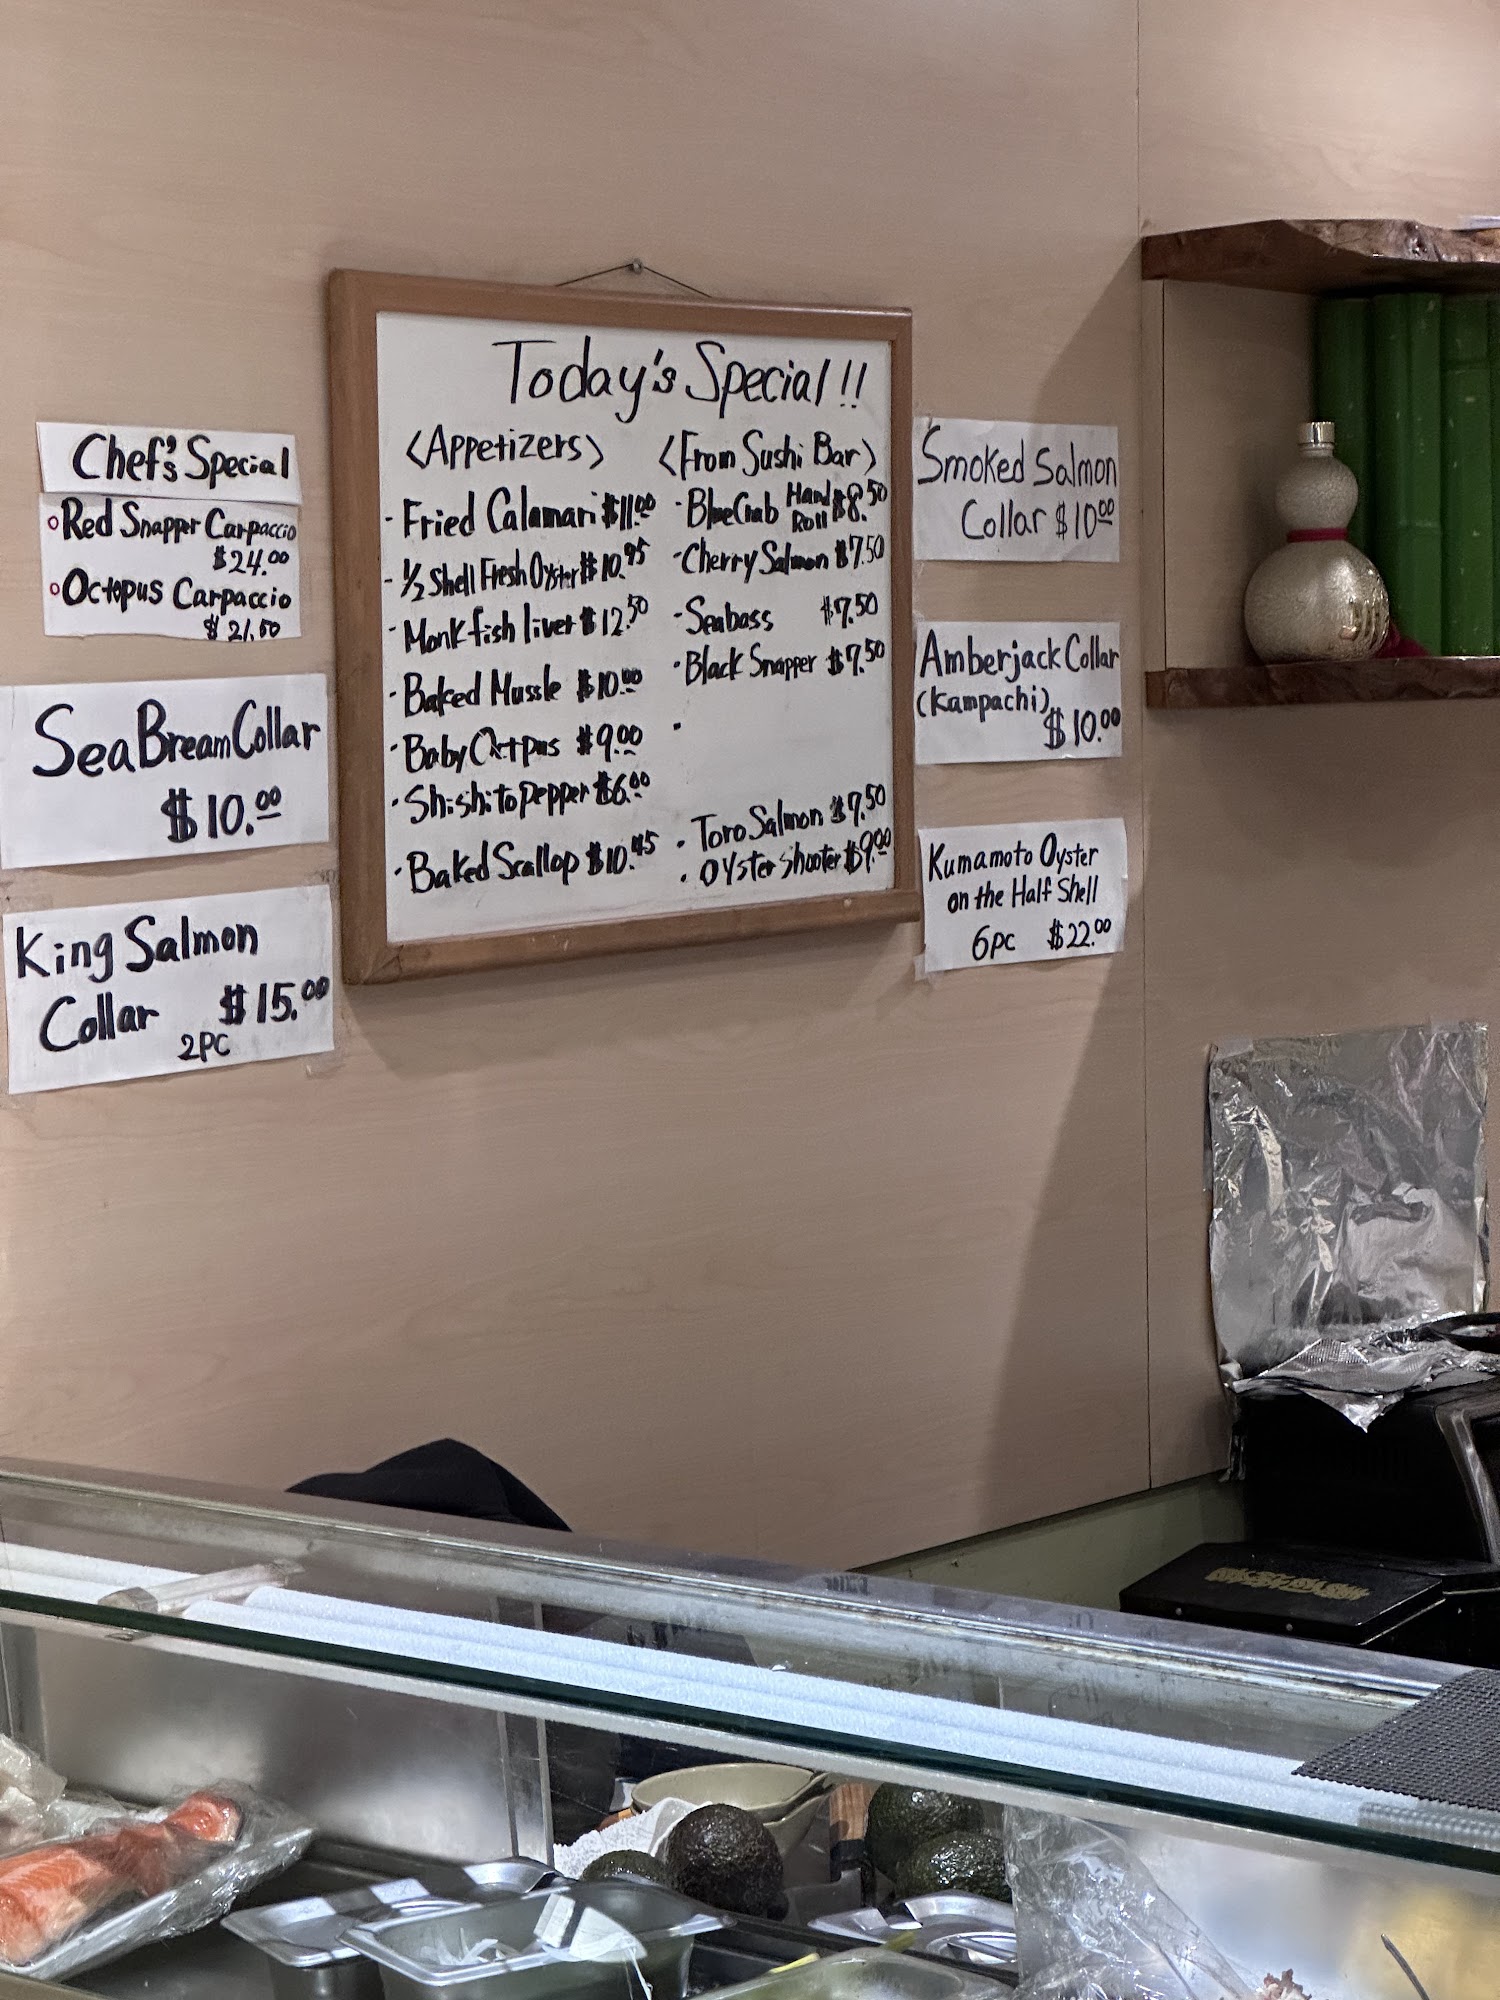 Chef's Special
Red Snapper Carpaccio
$24.00
Octopus Carpaccio
$21.50
Sea Bream Collar
$10.00
King Salmon
Collar $15.00
2PC
Today's Special!!
<Appetizers>
- Fried Calamari $11.00
- 1/2 Shell Fresh Oyster $10.95
- Monkfish liver $12.50
· Baked Mussle $10.00
· Baby Octpus $9.00
· Shishito pepper $6.00
· Baked Scallop $10.45
<From Sushi Bar>
· Blue Crab Hand Roll $8.50
· Cherry Salmon $7.50
· Seabass $7.50
· Black Snapper $7.50
·
· Toro Salmon $7.50
· Oyster shooter $9.00
Smoked Salmon
Collar $10.00
Amberjack Collar
(Kampachi)
$10.00
Kumamoto Oyster
on the Half Shell
6pc $22.00